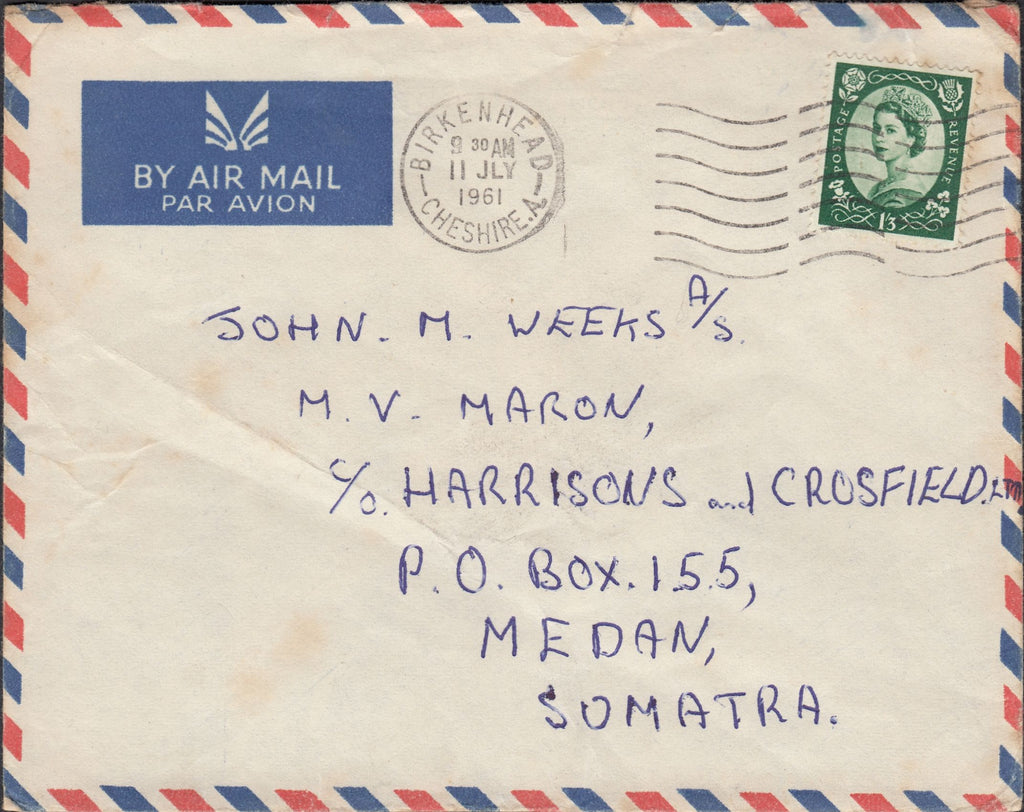 BY AIR MAIL
PAR AVION
BIRKENHEAD
9 30 AM
11 JLY
1961
CHESHIRE.A.
POSTAGE
REVENUE
1/3
JOHN. M. WEEKS A/S.
M. V. MARON,
C/O. HARRISONS and CROSFIELD.LTD
P. O. BOX. 155,
MEDAN,
SUMATRA.